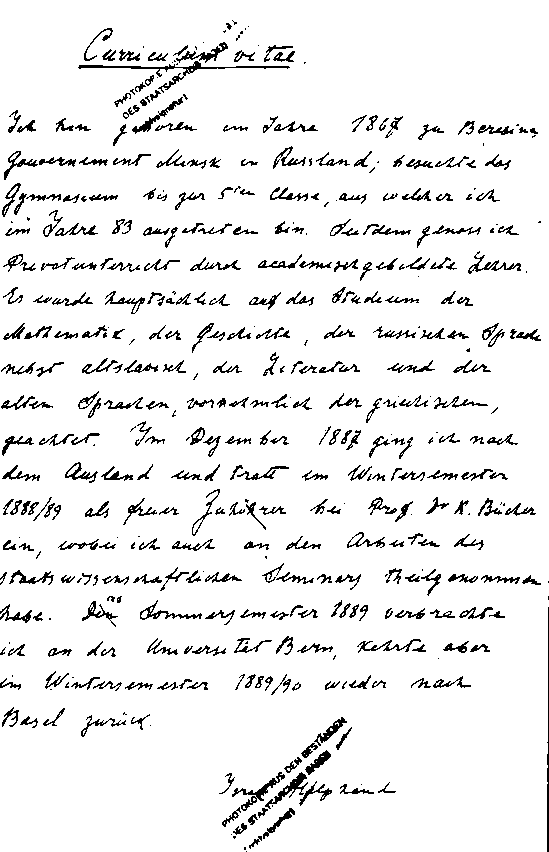 Curriculum vitae.
PHOTOKOPIE AUS
DES STAATSARCHIVS BASEL
Ich bin geboren im Jahre 1867 zu Beresina,
Gouvernement Minsk in Russland; besuchte das
Gymnasium bis zur 5ten Classe, aus welcher ich
im Jahre 83 ausgetreten bin. Seitdem genoss ich
Privatunterricht durch academisch gebildete Lehrer.
Es wurde hauptsächlich auf das Studium der
Mathematik, der Geschichte, der russischen Sprache
nebst altslavisch, der Literatur und der
alten Sprachen, vornehmlich der griechischen,
geachtet. Im Dezember 1887 ging ich nach
dem Ausland und tratt im Wintersemester
1888/89 als freier Zuhörer bei Prof. Dr K. Bücher
ein, wobei ich auch an den Arbeiten des
staatswissenschaftlichen Seminars theilgenommen
habe. Das Sommersemester 1889 verbrachte
ich an der Universität Bern, kehrte aber
im Wintersemester 1889/90 wieder nach
Basel zurück.
PHOTOKOPIE AUS DEN BESTÄNDEN
DES STAATSARCHIVS BASEL
Helphand